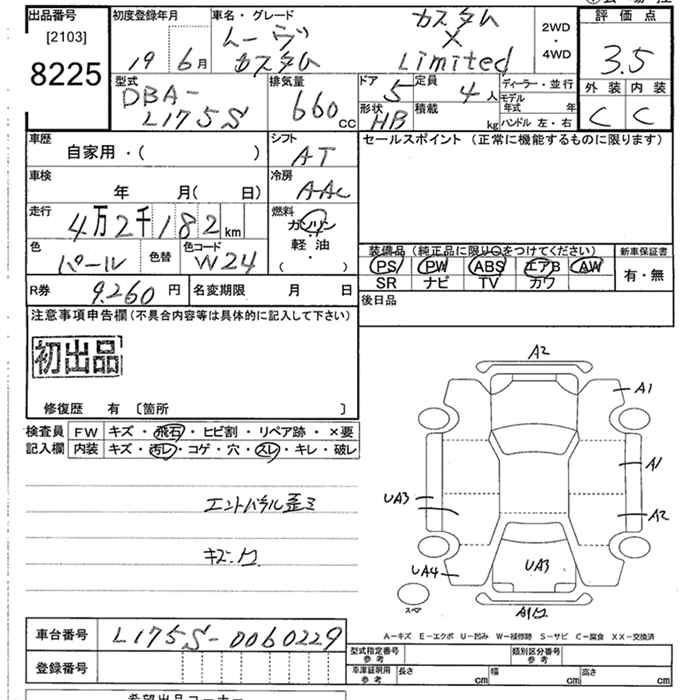 出品番号
[2103]
8225
初度登録年月
19 6月
車名・グレード
ムーヴ
カスタム
カスタム
X
Limited
2WD
・
4WD
評価点
3.5
外装 内装
C C
型式
DBA-
L175S
排気量
660 cc
ドア 5
定員 4人
形状 HB
積載 kg
ディーラー・並行
モデル年式 年
ハンドル 左・右
車歴
自家用・( )
シフト
AT
セールスポイント (正常に機能するものに限ります)
車検
年 月( 日)
冷房
AAC
走行
4万2千182km
燃料
ガソリン
軽油
( ・ )
色
パール
色替
色コード
W24
装備品 (純正品に限り○をつけてください)
新車保証書
PS PW ABS エアB AW
SR ナビ TV カワ
有・無
R券 9.260 円
名変期限 月 日
後日品
注意事項申告欄(不具合内容等は具体的に記入して下さい)
初出品
修復歴 有 〔箇所 〕
検査員記入欄
FW キズ・飛石・ヒビ割・リペア跡・×要
内装 キズ・汚レ・コゲ・穴・スレ・キレ・破レ
エンドパネル歪ミ
A2
A1
A1
UA3
A2
UA4
UA3
スペア
車台番号 L175S-0060229
登録番号
A－キズ E－エクボ U－凹み W－補修跡 S－サビ C－腐食 XX－交換済
型式指定番号
参考
類別区分番号
参考
車庫証明用
参考
長さ cm
幅 cm
高さ cm
希望出品コーナー